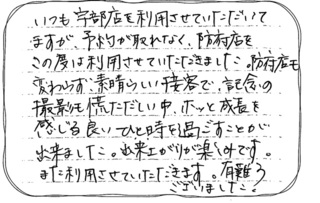 いつも宇部店を利用させていただいて
ますが、予約が取れなくて、防府店を
この度は利用させていただきました。防府店も
変わらず、素晴らしい接客で、記念の
撮影も慌ただしい中、ホッと成長を
感じる良いひと時を過ごすことが
出来ました。出来上がりが楽しみです。
また利用させていただきます。有難う
ございました。